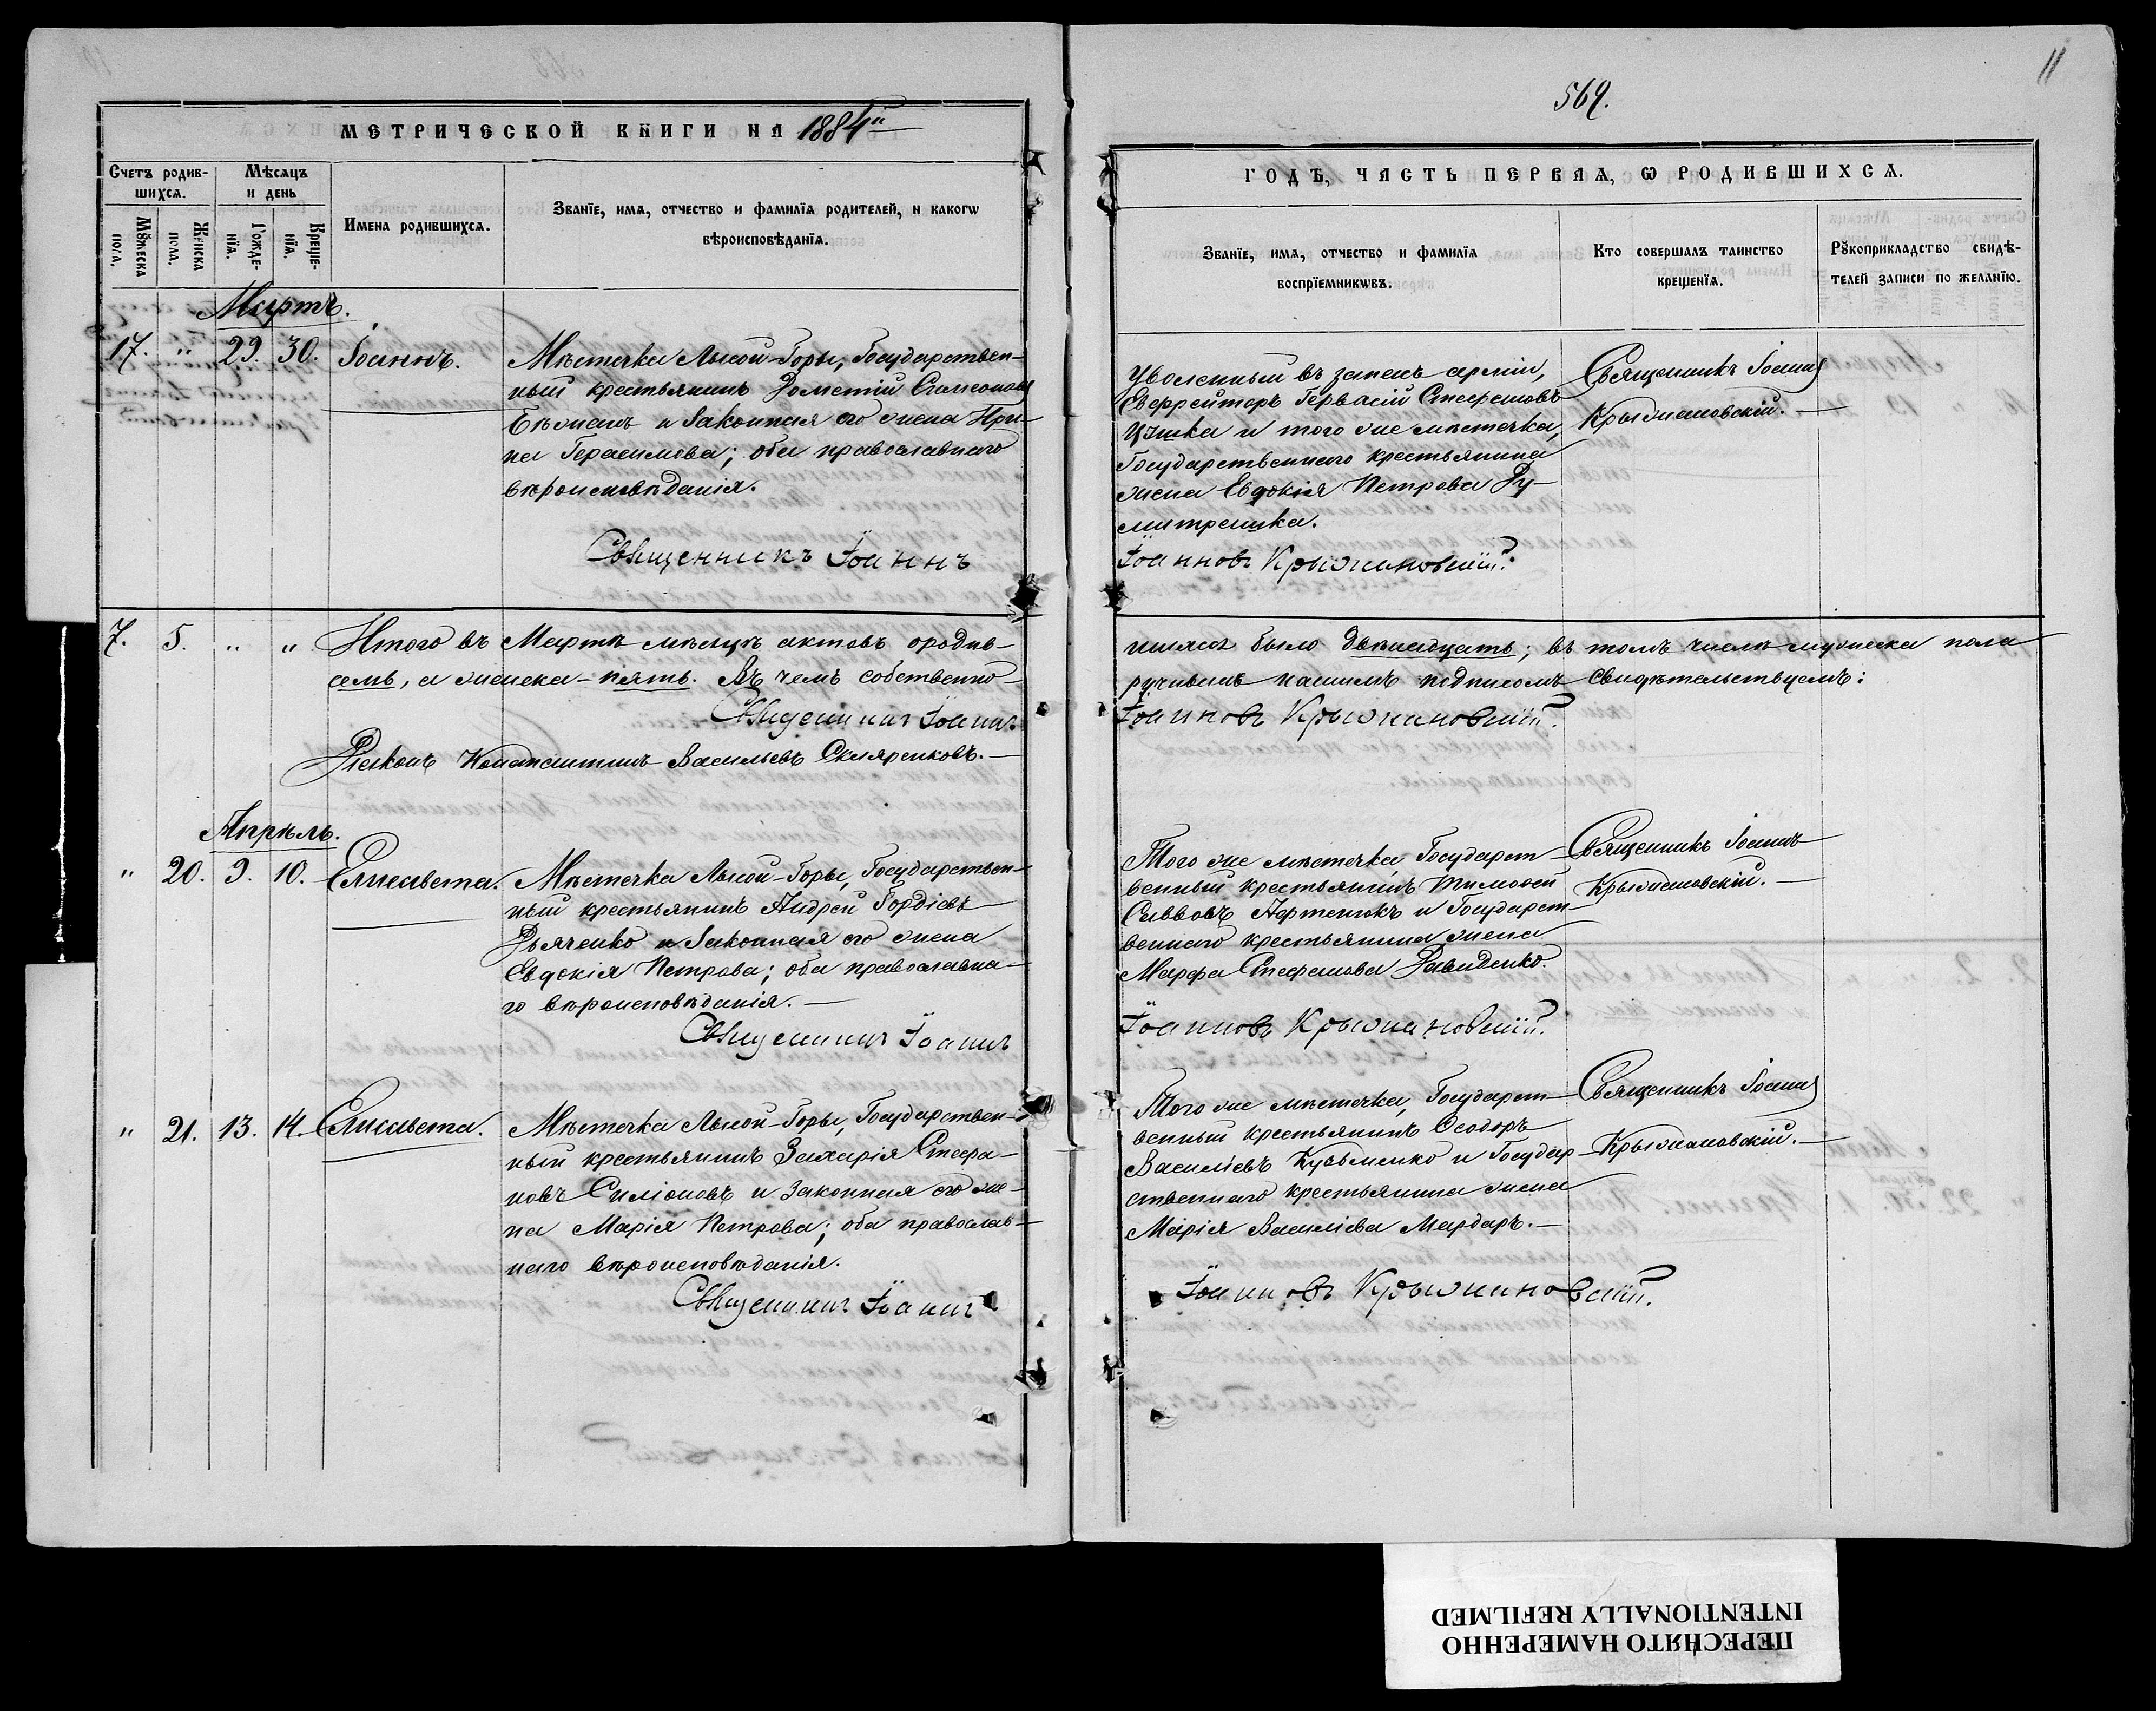 569.
11
МЕТРИЧЕСКОЙ КНИГИ НА 1884й
ГОДЪ, ЧАСТЬ ПЕРВАЯ, Ѡ РОДИВШИХСѦ.
Счетъ родив-
шихсѧ.
Мѣсѧцъ
и день
Мꙋжеска
пола.
Женска
пола.
Рожде-
нїѧ.
Креще-
нїѧ.
Имена родившихсѧ.
Званїе, имѧ, отчество и фамилїѧ родителей, и какогѡ
вѣроисповѣданїѧ.
Званїе, имѧ, отчество и фамилїѧ
воспрїемникѡвъ.
Кто совершалъ таинство
крещенїѧ.
Рꙋкоприкладство свидѣ-
телей записи по желанїю.
Мартъ.
17. " 29. 30. Іоаннъ.
Мѣстечка Лысой-Горы, Государствен-
ный крестьянинъ Дометій Симеоновъ
и Законная его жена Ири-
на Герасимова; оба православнаго
вѣроисповѣданія.
Священникъ Іоаннъ
Уволенный въ запасъ арміи,
Ефрейторъ Гервасій Стефановъ
и того же мѣстечка,
Государственнаго крестьянина
жена Евдокія Петрова Ду-
митрашка.
Іоанновъ Крыжановскій.
Священникъ Іоаннъ
Крыжановскій.
7. 5. " " Итого въ Мартѣ мѣсяцѣ актовъ ородив-
шихся было двѣнадцать; въ томъ числѣ мужеска пола
семь, а женска-пять. Въ чемъ собственно-
ручнымъ нашимъ подписомъ свидѣтельствуемъ:
Священникъ Іоаннъ
Іоанновъ Крыжановскій.
Діаконъ Константинъ Васильевъ Скляренковъ.
Апрѣль.
" 20. 9. 10. Елисавета.
Мѣстечка Лысой-Горы, Государствен-
ный крестьянинъ Андрей Гордіевъ
Дьяченко и Законная его жена
Евдокія Петрова; оба православна-
го вѣроисповѣданія.
Священникъ Іоаннъ
Того же мѣстечка, Государст-
венный крестьянинъ Тимоѳей
Савовъ и Государст-
веннаго крестьянина жена
Марфа Стефанова Давиденко.
Іоанновъ Крыжановскій.
Священникъ Іоаннъ
Крыжановскій.
" 21. 13. 14. Елисавета.
Мѣстечка Лысой-Горы, Государствен-
ный крестьянинъ Захарія Стефа-
новъ Симіоновъ и Законная его же-
на Марія Петрова; оба православ-
наго вѣроисповѣданія.
Священникъ Іоаннъ
Того же мѣстечка, Государст-
венный крестьянинъ Ѳеодоръ
Василіевъ Кузьменко и Государ-
ственнаго крестьянина жена
Марія Василіева Мардаръ.
Іоанновъ Крыжановскій.
Священникъ Іоаннъ
Крыжановскій.
ПЕРЕСНЯТО НАМЕРЕННО
INTENTIONALLY REFILMED